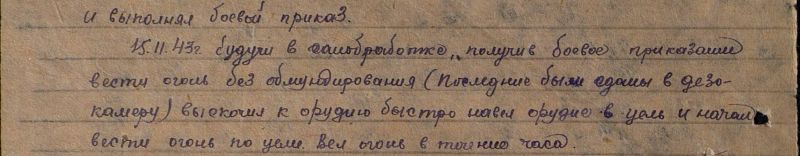 и выполнял боевой приказ.
15.11.43г будучи в санобработке, получив боевое приказание
вести огонь без обмундирования (Последние были сданы в дезо-
камеру) выскочил к орудию быстро навел орудие в цель и начал
вести огонь по цели. Вел огонь в течение часа.